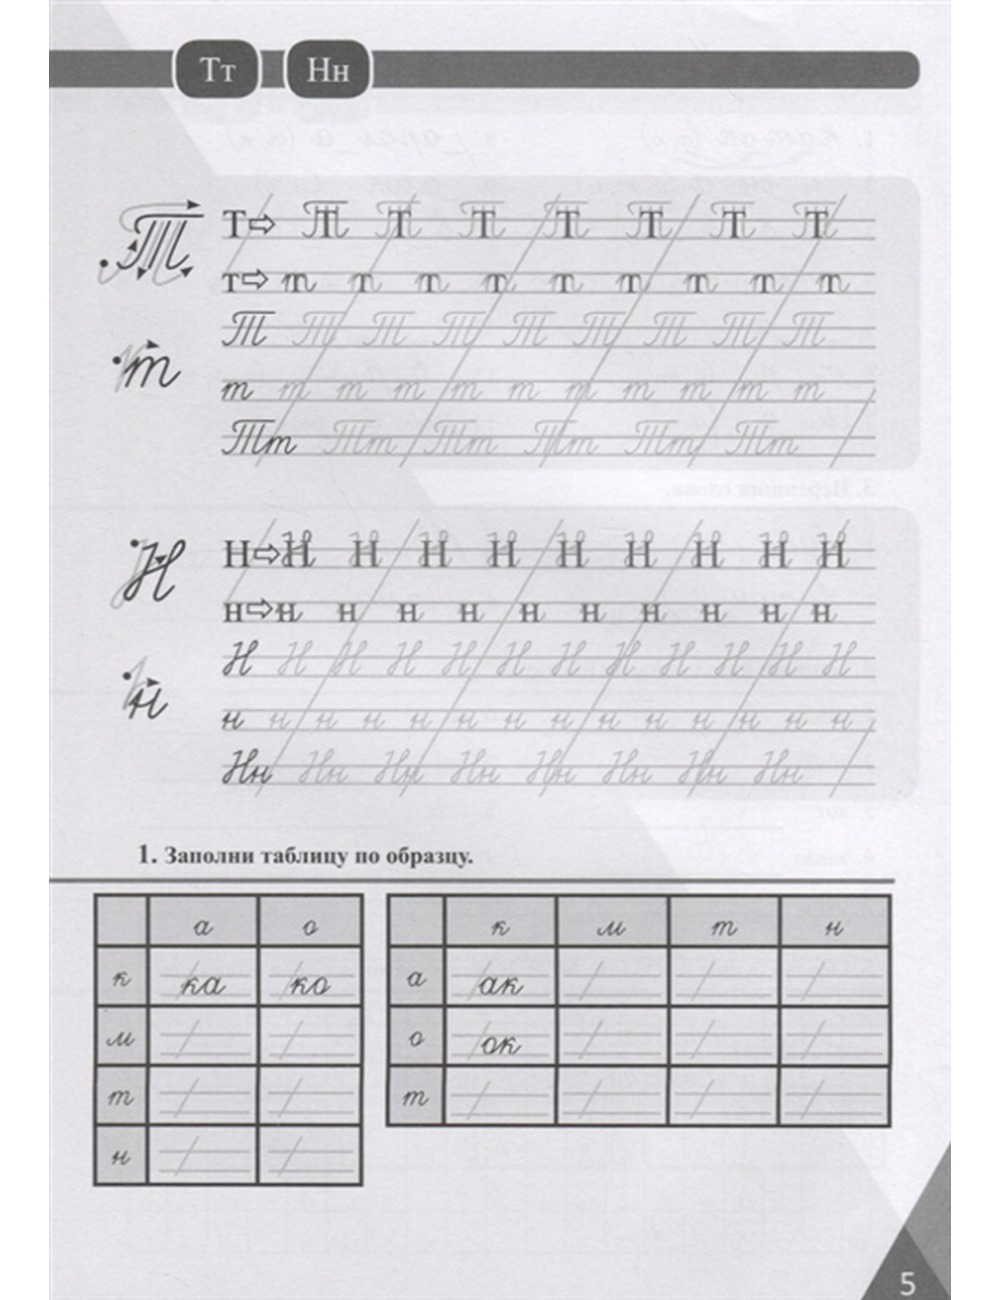 Тт Нн
Т Т Т Т Т Т Т Т
т т т т т т т т т т
Т Т Т Т Т Т Т Т Т
т т т т т т т т т т т
Тт Тт Тт Тт Тт Тт
Н Н Н Н Н Н Н Н Н Н
н н н н н н н н н н н
Н Н Н Н Н Н Н Н Н Н Н Н
н н н н н н н н н н н н н н
Нн Нн Нн Нн Нн Нн Нн Нн
Т
т
Н
н
1. Заполни таблицу по образцу.
а о
к ка ко
м
т
н
к м т н
а ак
о ок
т
5